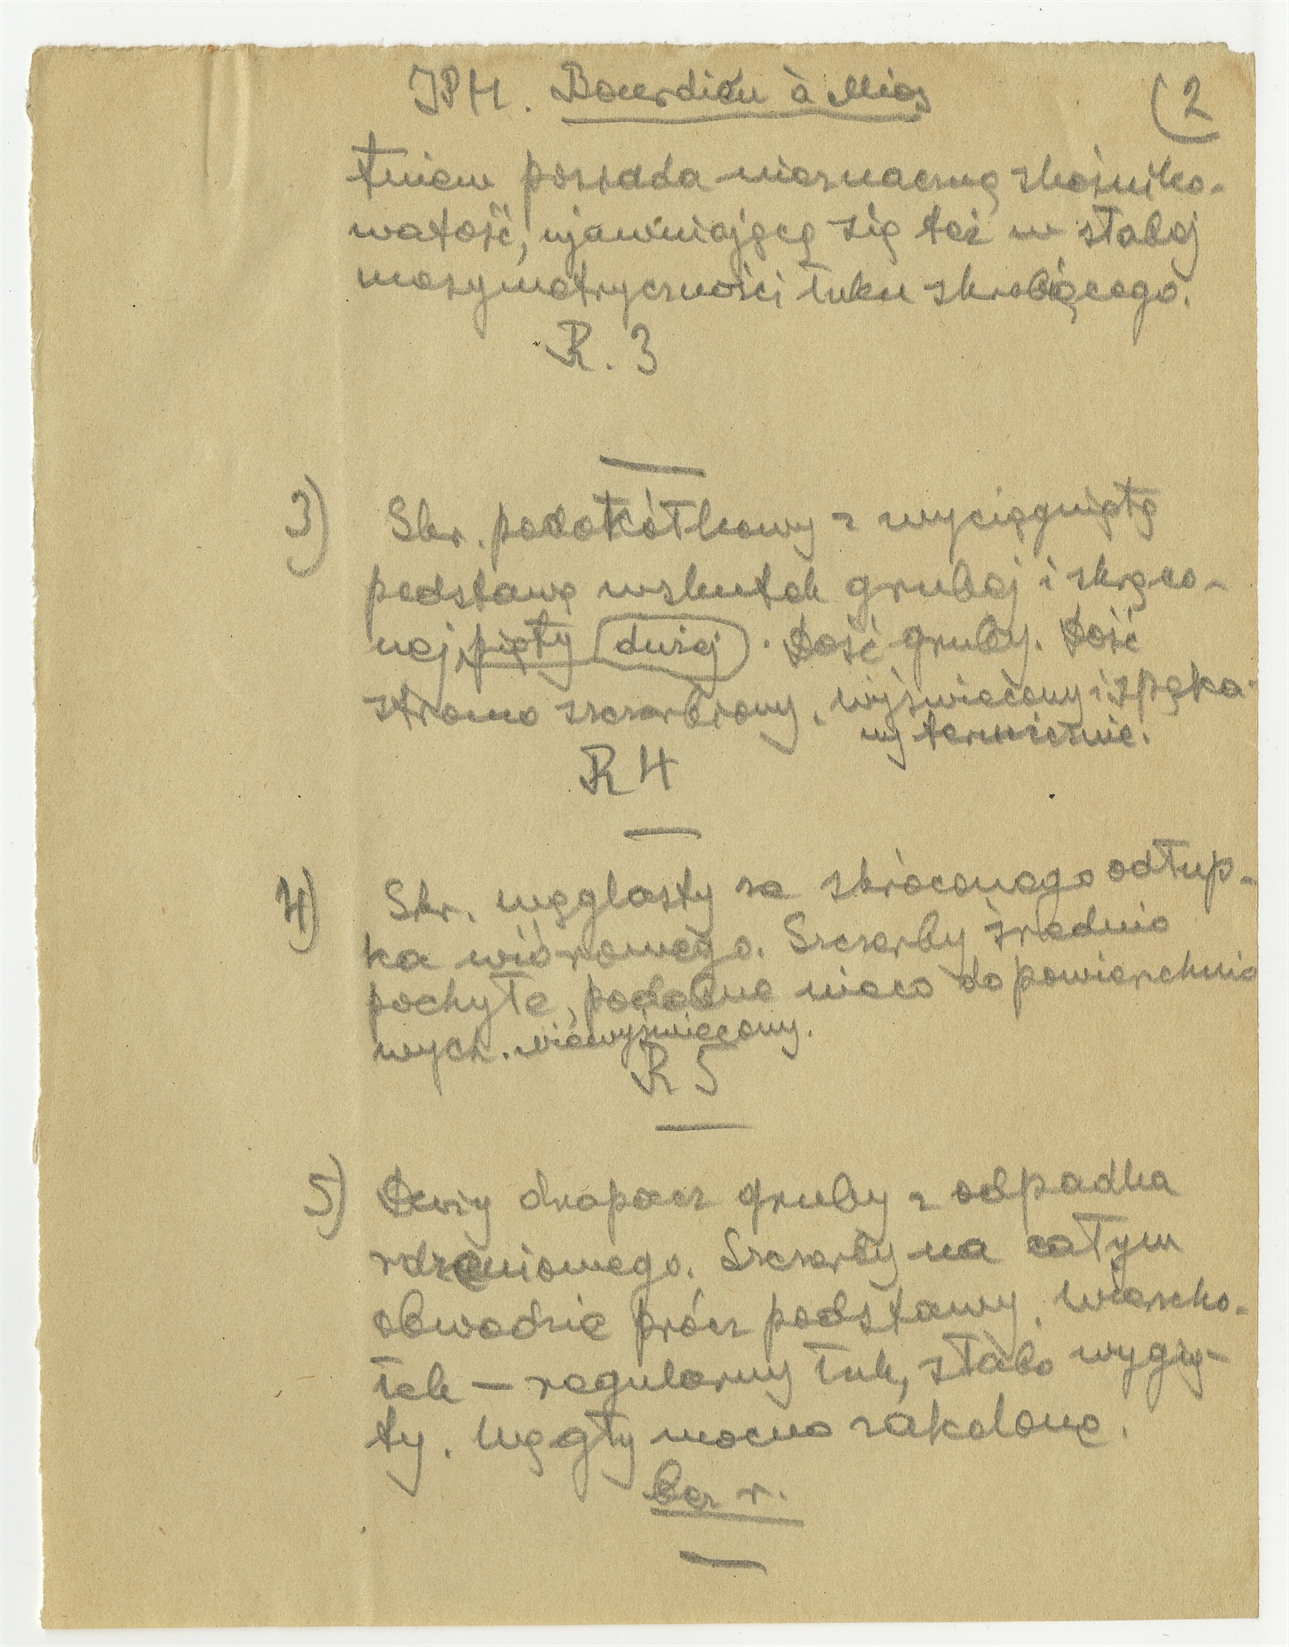 IPH. Bourdieu à Mios
(2
tniem posiada nieznaczną skośniko-
watość, ujawniającą się też w słabej
niesymetryczności łuku skrobiącego.
R. 3
3) Skr. podotkółkowy z wyciągniętą
podstawą wskutek grubej i skręco-
nej, pięty dużej. Dość gruby. Dość
stromo szczerbiony. Wyświecony i spęka-
ny termicznie.
R 4
4) Skr. węglasty ze skróconego odłup-
ka wiórowego. Szczerby średnio
pochyłe, podobne nieco do powierzchnio
wych. niewyświecony.
R 5
5) Duży drapacz gruby z odpadka
rdzeniowego. Szczerby na całym
obwodzie prócz podstawy. Wierzcho-
łek – regularny łuk, słabo wygię-
ty. Węgły mocno zakolone.
bez r.